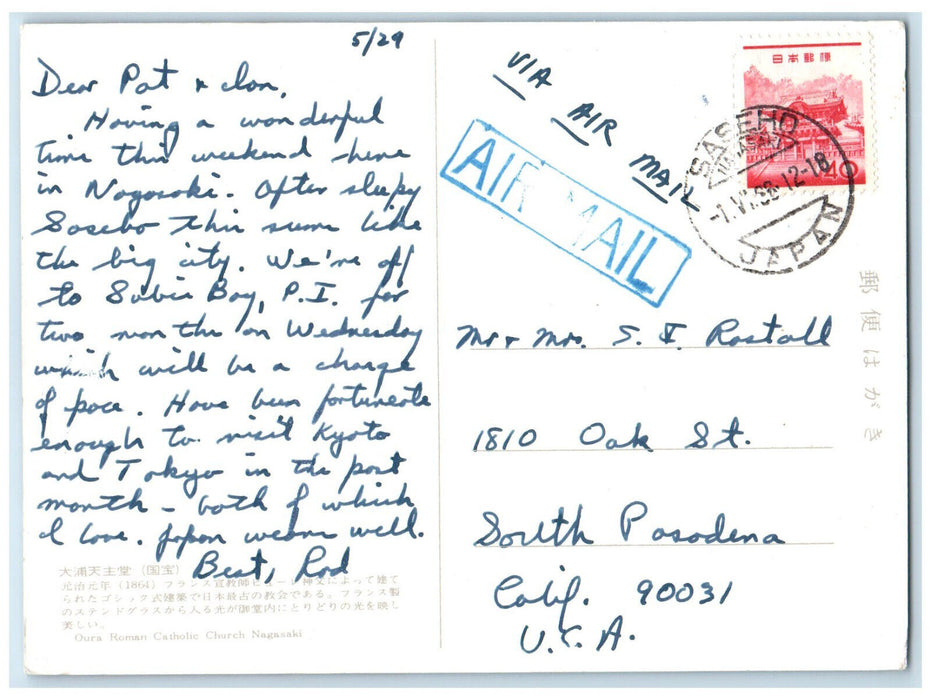 5/29
Dear Pat & Jon,
Having a wonderful
time this weekend here
in Nagasaki. After sleepy
Sasebo this seems like
the big city. We're off
to Subic Bay, P.I. for
two months on Wednesday
which will be a change
of pace. Have been fortunate
enough to visit Kyoto
and Tokyo in the past
month - both of which
I love. Japan wears well.
Best, Rod
大浦天主堂 (国宝)
元治元年 (1864) フランス宣教師ピューレ神父によって建て
られたゴシック式建築で日本最古の教会である。フランス製
のステンドグラスから入る光が御堂内にとりどりの光を映し
美しい。
Oura Roman Catholic Church Nagasaki
VIA
AIR
MAIL
AIR MAIL
日本郵便
40
SASEHO
NAGASAKI
-1.VI.68.12-18
JAPAN
郵便はがき
Mr & Mrs. S. I. Rastall
1810 Oak St.
South Pasadena
Calif. 90031
U.S.A.